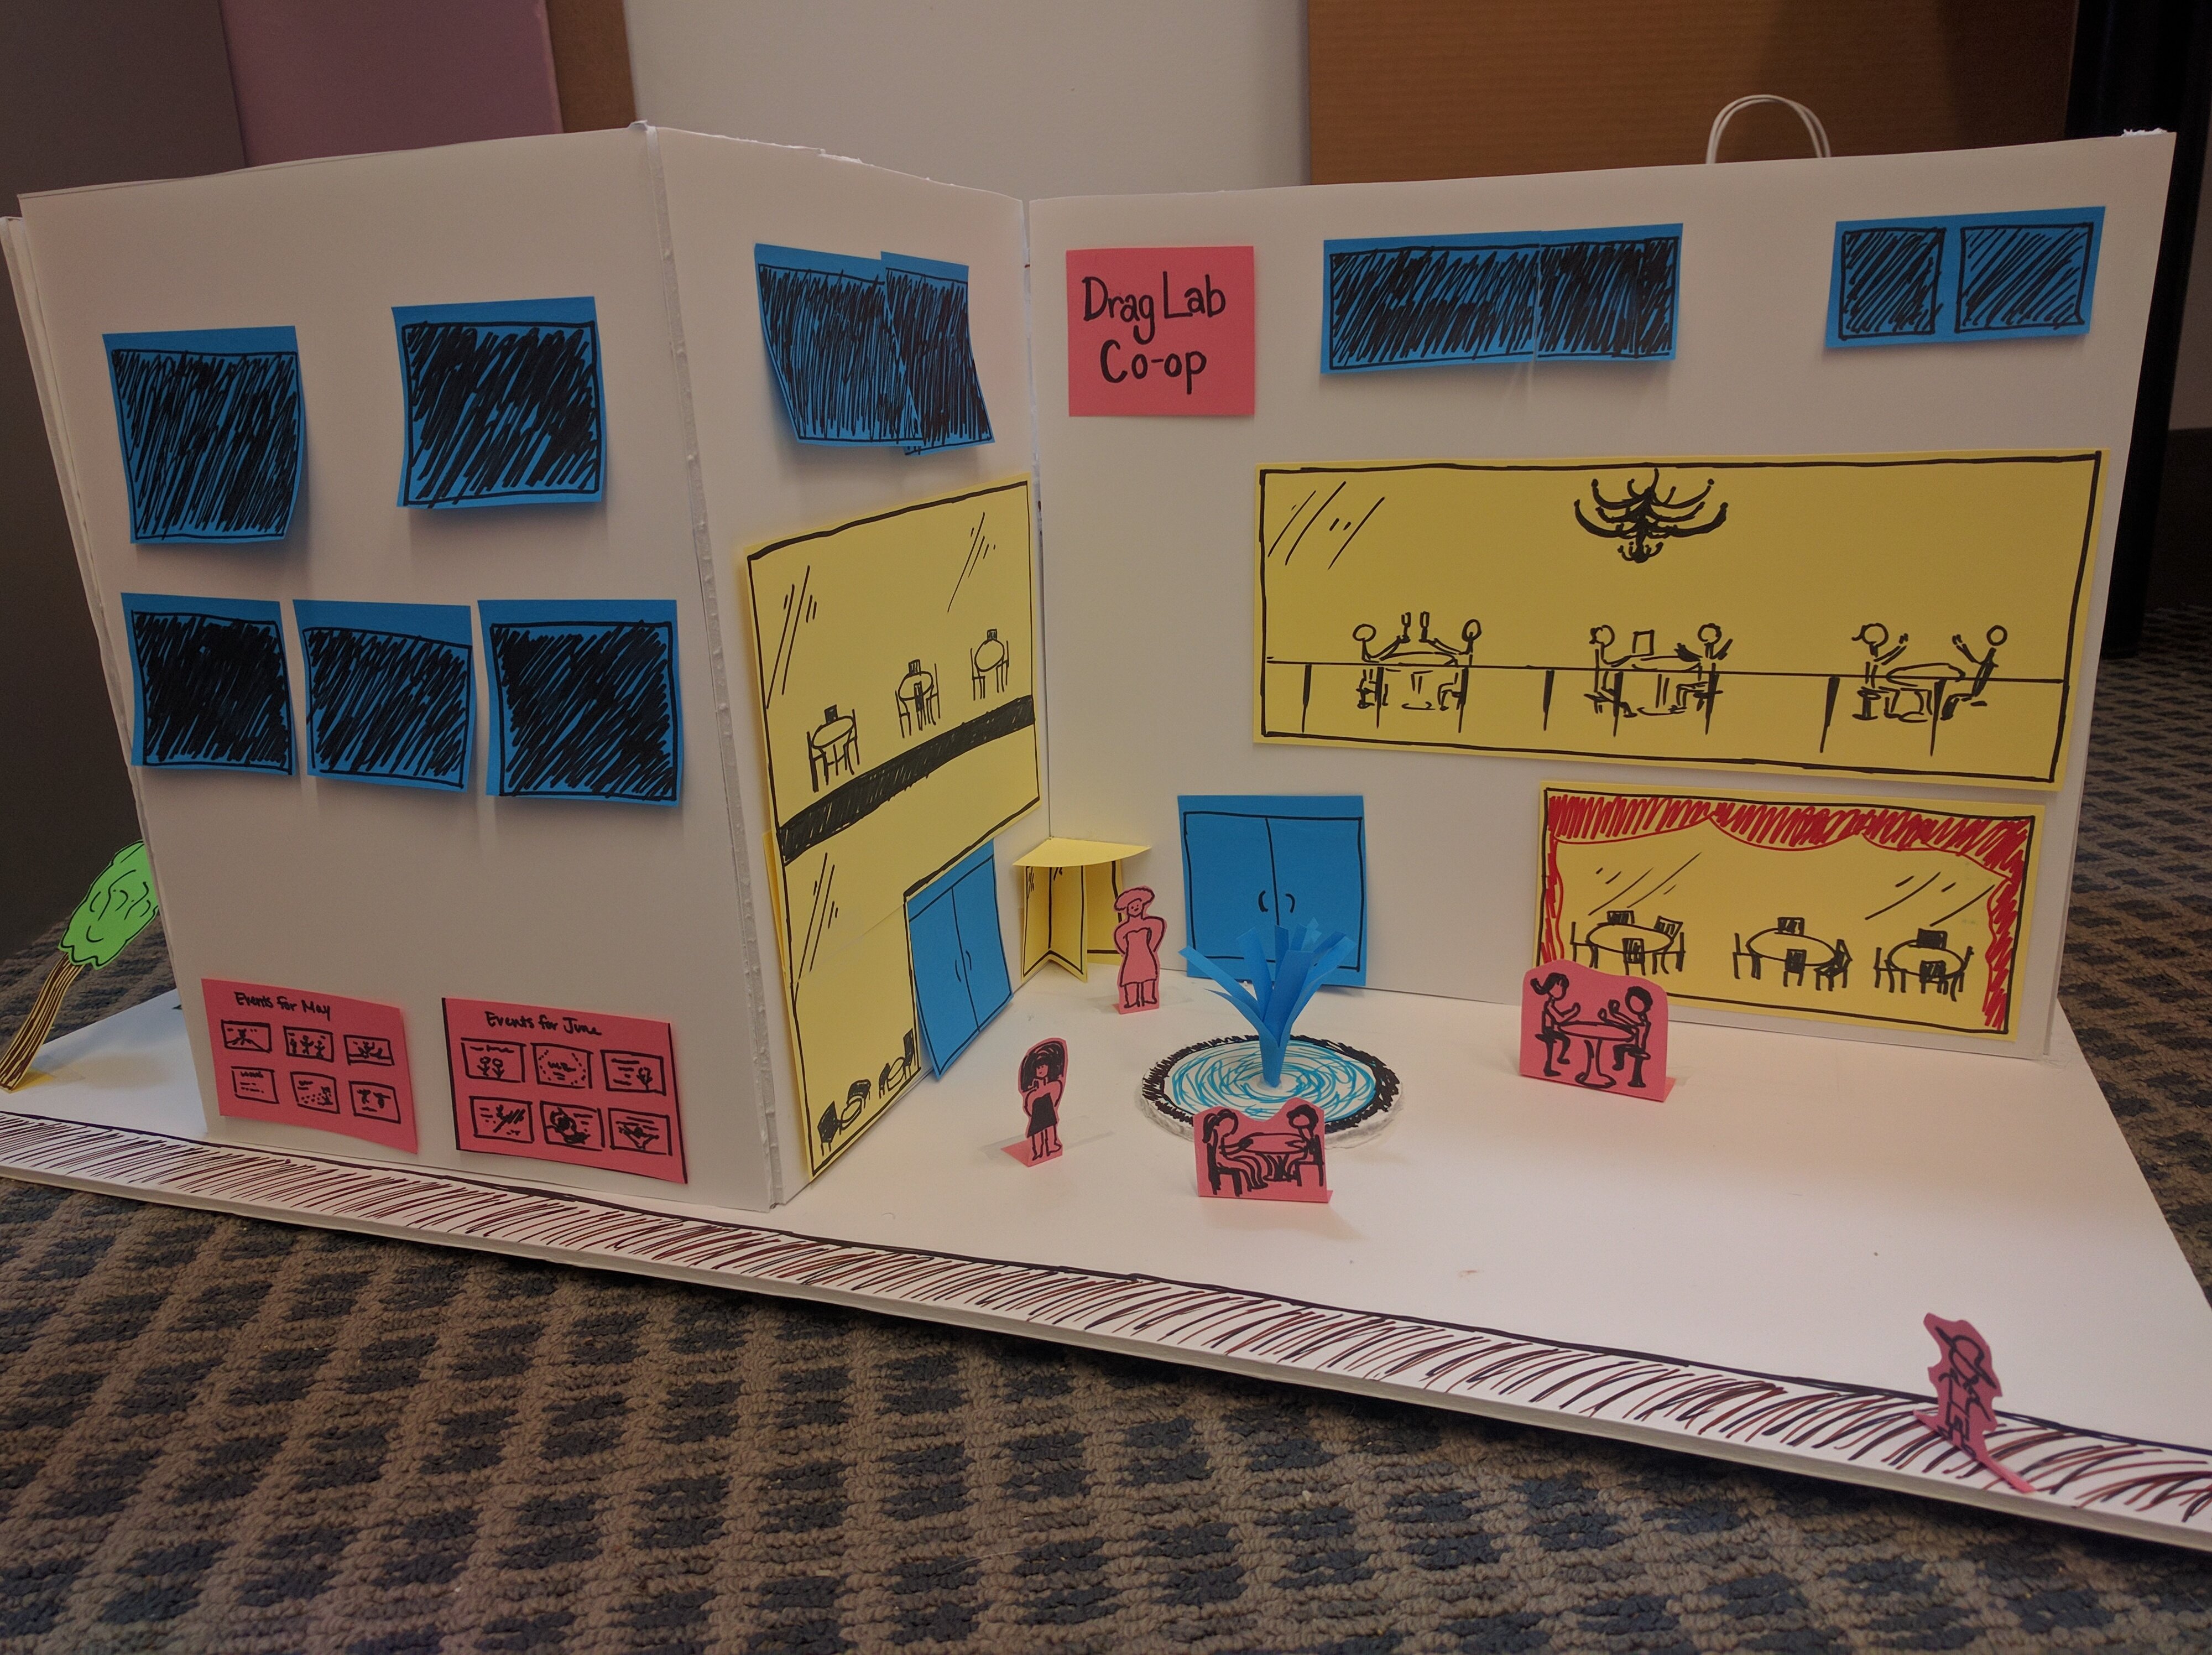 Drag Lab
Co-op
Events for May
Events for June